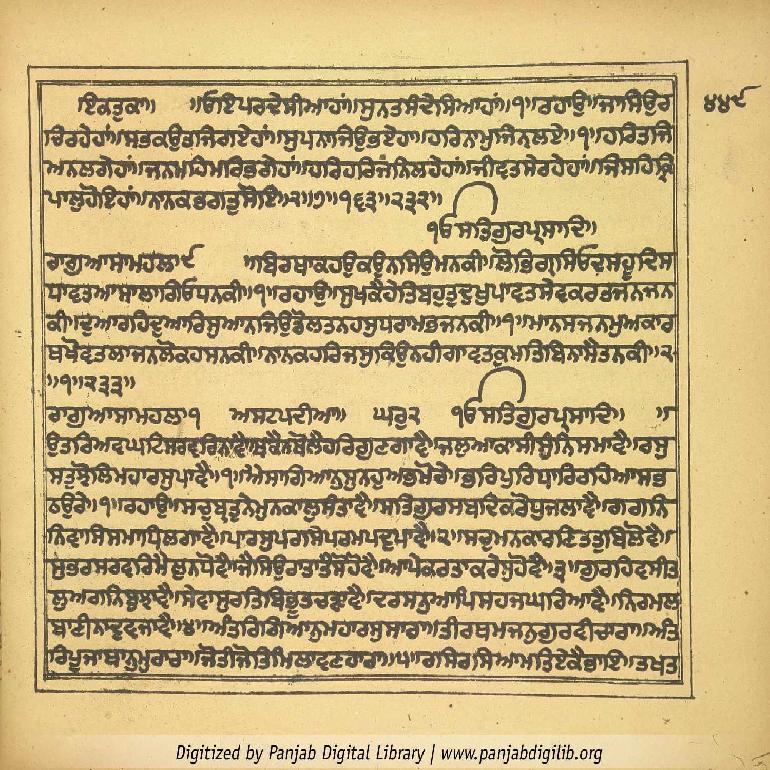 ਇਕਤੁਕਾ॥ ॥ਓਇਪਰਦੇਸੀਆਹਾਂ॥ਸੁਨਤਸੰਦੇਸਿਆਹਾਂ॥੧॥ਰਹਾਉ॥ਜਾਸਿਉਰ
ਚਿਰਹੇਹਾਂ॥ਸਭਕਉਤਜਿਗਏਹਾਂ॥ਸੁਪਨਾਜਿਉਭਏਹਾਂ॥ਹਰਿਨਾਮੁਜਿਨਲਏ॥੧॥ਹਰਿਤਜਿ
ਅਨਲਗੇਹਾਂ॥ਜਨਮਹਿਮਰਿਭਗੇਹਾਂ॥ਹਰਿਹਰਿਜਨਿਲਹੇਹਾਂ॥ਜੀਵਤਸੇਰਹੇਹਾਂ॥ਜਿਸਹਿਕ੍ਰਿ
ਪਾਲੁਹੋਇਹਾਂ॥ਨਾਨਕਭਗਤੁਸੋਇ॥੨॥੭॥੧੬੩॥੨੩੨॥
੪੪੯
ੴਸਤਿਗੁਰਪ੍ਰਸਾਦਿ॥
ਰਾਗੁਆਸਾਮਹਲਾ੯ ॥ਬਿਰਥਾਕਹਉਕਉਨਸਿਉਮਨਕੀ॥ਲੋਭਿਗ੍ਰਸਿਓਦਸਹੂਦਿਸ
ਧਾਵਤਆਸਾਲਾਗਿਓਧਨਕੀ॥੧॥ਰਹਾਉ॥ਸੁਖਕੈਹੇਤਿਬਹੁਤੁਦੁਖੁਪਾਵਤਸੇਵਕਰਤਜਨਜਨ
ਕੀ॥ਦੁਆਰਹਿਦੁਆਰਿਸੁਆਨਜਿਉਡੋਲਤਨਹਸੁਧਰਾਮਭਜਨਕੀ॥੧॥ਮਾਨਸਜਨਮੁਅਕਾਰ
ਥਖੋਵਤਲਾਜਨਲੋਕਹਸਨਕੀ॥ਨਾਨਕਹਰਿਜਸੁਕਿਉਨਹੀਗਾਵਤਕੁਮਤਿਬਿਨਾਸੈਤਨਕੀ॥੨
॥੧॥੨੩੩॥
ਰਾਗੁਆਸਾਮਹਲਾ੧ ਅਸਟਪਦੀਆ॥ ਘਰੁ੨ ੴਸਤਿਗੁਰਪ੍ਰਸਾਦਿ॥ ॥
ਉਤਰਿਅਵਘਟਿਸਰਵਰਿਨਾਵੈ॥ਬਕੈਨਬੋਲੈਹਰਿਗੁਣਗਾਵੈ॥ਜਲੁਆਕਾਸੀਸੁੰਨਿਸਮਾਵੈ॥ਰਸੁ
ਸਤੁਝੋਲਿਮਹਾਰਸੁਪਾਵੈ॥੧॥ਐਸਾਗਿਆਨੁਸੁਨਹੁਅਭਮੋਰੇ॥ਭਰਿਪੁਰਿਧਾਰਿਰਹਿਆਸਭ
ਠਉਰੇ॥੧॥ਰਹਾਉ॥ਸਚੁਬ੍ਰਤੁਨੇਮੁਨਕਾਲੁਸੰਤਾਵੈ॥ਸਤਿਗੁਰਸਬਦਿਕਰੋਧੁਜਲਾਵੈ॥ਗਗਨਿ
ਨਿਵਾਸਿਸਮਾਧਿਲਗਾਵੈ॥ਪਾਰਸੁਪਰਸਿਪਰਮਪਦੁਪਾਵੈ॥੨॥ਸਚੁਮਨਕਾਰਣਿਤਤੁਬਿਲੋਵੈ॥
ਸੁਭਰਸਰਵਰਿਮੈਲੁਨਧੋਵੈ॥ਜੈਸਿਉਰਾਤਾਤੈਸੋਹੋਵੈ॥ਆਪੇਕਰਤਾਕਰੇਸੁਹੋਵੈ॥੩॥ਗੁਰਹਿਵਸੀਤ
ਲੁਅਗਨਿਬੁਝਾਵੈ॥ਸੇਵਾਸੁਰਤਿਬਿਭੂਤਚੜਾਵੈ॥ਦਰਸਨੁਆਪਿਸਹਜਘਰਿਆਵੈ॥ਨਿਰਮਲ
ਬਾਣੀਨਾਦੁਵਜਾਵੈ॥੪॥ਅੰਤਰਿਗਿਆਨੁਮਹਾਰਸੁਸਾਰਾ॥ਤੀਰਥਮਜਨੁਗੁਰਵੀਚਾਰਾ॥ਅੰਤ
ਰਿਪੂਜਾਥਾਨੁਮੁਰਾਰਾ॥ਜੋਤੀਜੋਤਿਮਿਲਾਵਣਹਾਰਾ॥੫॥ਰਸਿਰਸਿਆਮਤਿਏਕੈਭਾਇ॥ਤਖਤ
Digitized by Panjab Digital Library | www.panjabdigilib.org